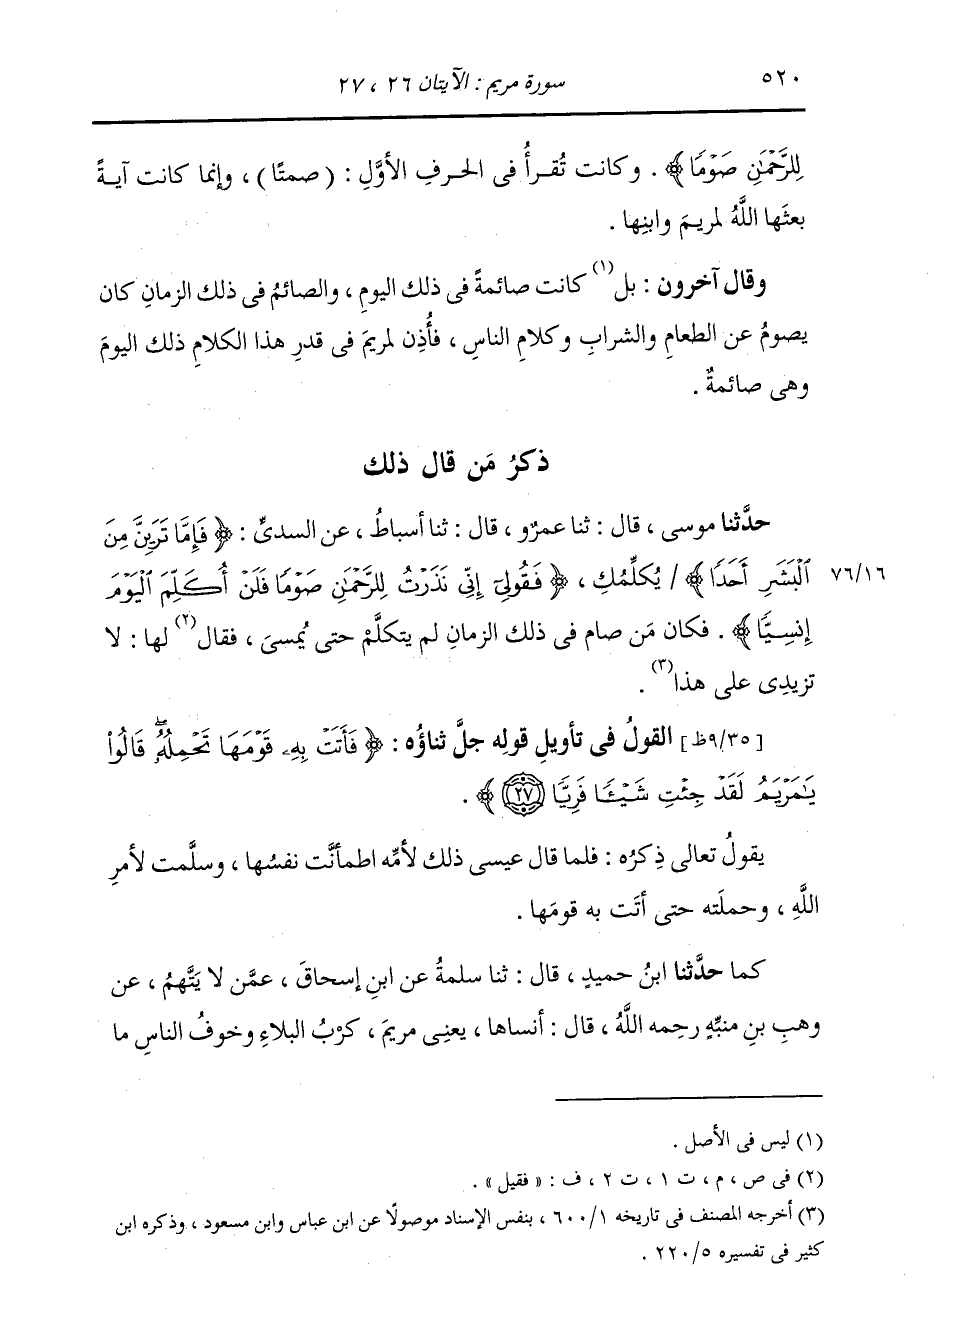 ٥٢٠ سورة مريم : الآيتان ٢٦ ، ٢٧
لِلرَّحْمَٰنِ صَوْمًا﴾ . وكانت تُقرأُ فى الحرفِ الأوَّلِ : (صمتًا) ، وإنما كانت آيةً
بعثَها اللَّهُ لمريمَ وابنِها .
وقال آخرون : بل(١) كانت صائمةً فى ذلك اليومِ ، والصائمُ فى ذلك الزمانِ كان
يصومُ عن الطعامِ والشرابِ وكلامِ الناسِ ، فأُذِن لمريمَ فى قدرِ هذا الكلامِ ذلك اليومَ
وهى صائمةٌ .
ذكرُ مَن قال ذلك
حدَّثنا موسى ، قال : ثنا عمرٌو ، قال : ثنا أسباطُ ، عن السدىِّ : ﴿ فَإِمَّا تَرَيِنَّ مِنَ
ٱلْبَشَرِ أَحَدًا﴾ / يُكلِّمُكِ ، ﴿ فَقُولِىٓ إِنِّى نَذَرْتُ لِلرَّحْمَٰنِ صَوْمًا فَلَنْ أُكَلِّمَ ٱلْيَوْمَ ٧٦/١٦
إِنسِيًّا﴾ . فكان مَن صام فى ذلك الزمانِ لم يتكلَّمْ حتى يُمسىَ ، فقال(٢) لها : لا
تزيدِى على هذا(٣) .
[٩/٣٥ظ] القولُ فى تأويلِ قولِه جلَّ ثناؤُه : ﴿ فَأَتَتْ بِهِۦ قَوْمَهَا تَحْمِلُهُۥۖ قَالُوا۟
يَٰمَرْيَمُ لَقَدْ جِئْتِ شَيْـًٔا فَرِيًّا ٢٧ ﴾ .
يقولُ تعالى ذِكرُه : فلما قال عيسى ذلك لأمِّه اطمأنَّت نفسُها ، وسلَّمت لأمرِ
اللَّهِ ، وحملَته حتى أتَت به قومَها .
كما حدَّثنا ابنُ حميدٍ ، قال : ثنا سلمةُ عن ابنِ إسحاقَ ، عمَّن لا يَتَّهمُ ، عن
وهبِ بنِ منبِّهٍ رحِمه اللَّهُ ، قال : أنساها ، يعنِى مريمَ ، كرْبُ البلاءِ وخوفُ الناسِ ما
(١) ليس فى الأصل .
(٢) فى ص ، م ، ت ١ ، ت ٢ ، ف : « فقيل » .
(٣) أخرجه المصنف فى تاريخه ٦٠٠/١ ، بنفس الإسناد موصولًا عن ابن عباس وابن مسعود ، وذكره ابن
كثير فى تفسيره ٢٢٠/٥ .